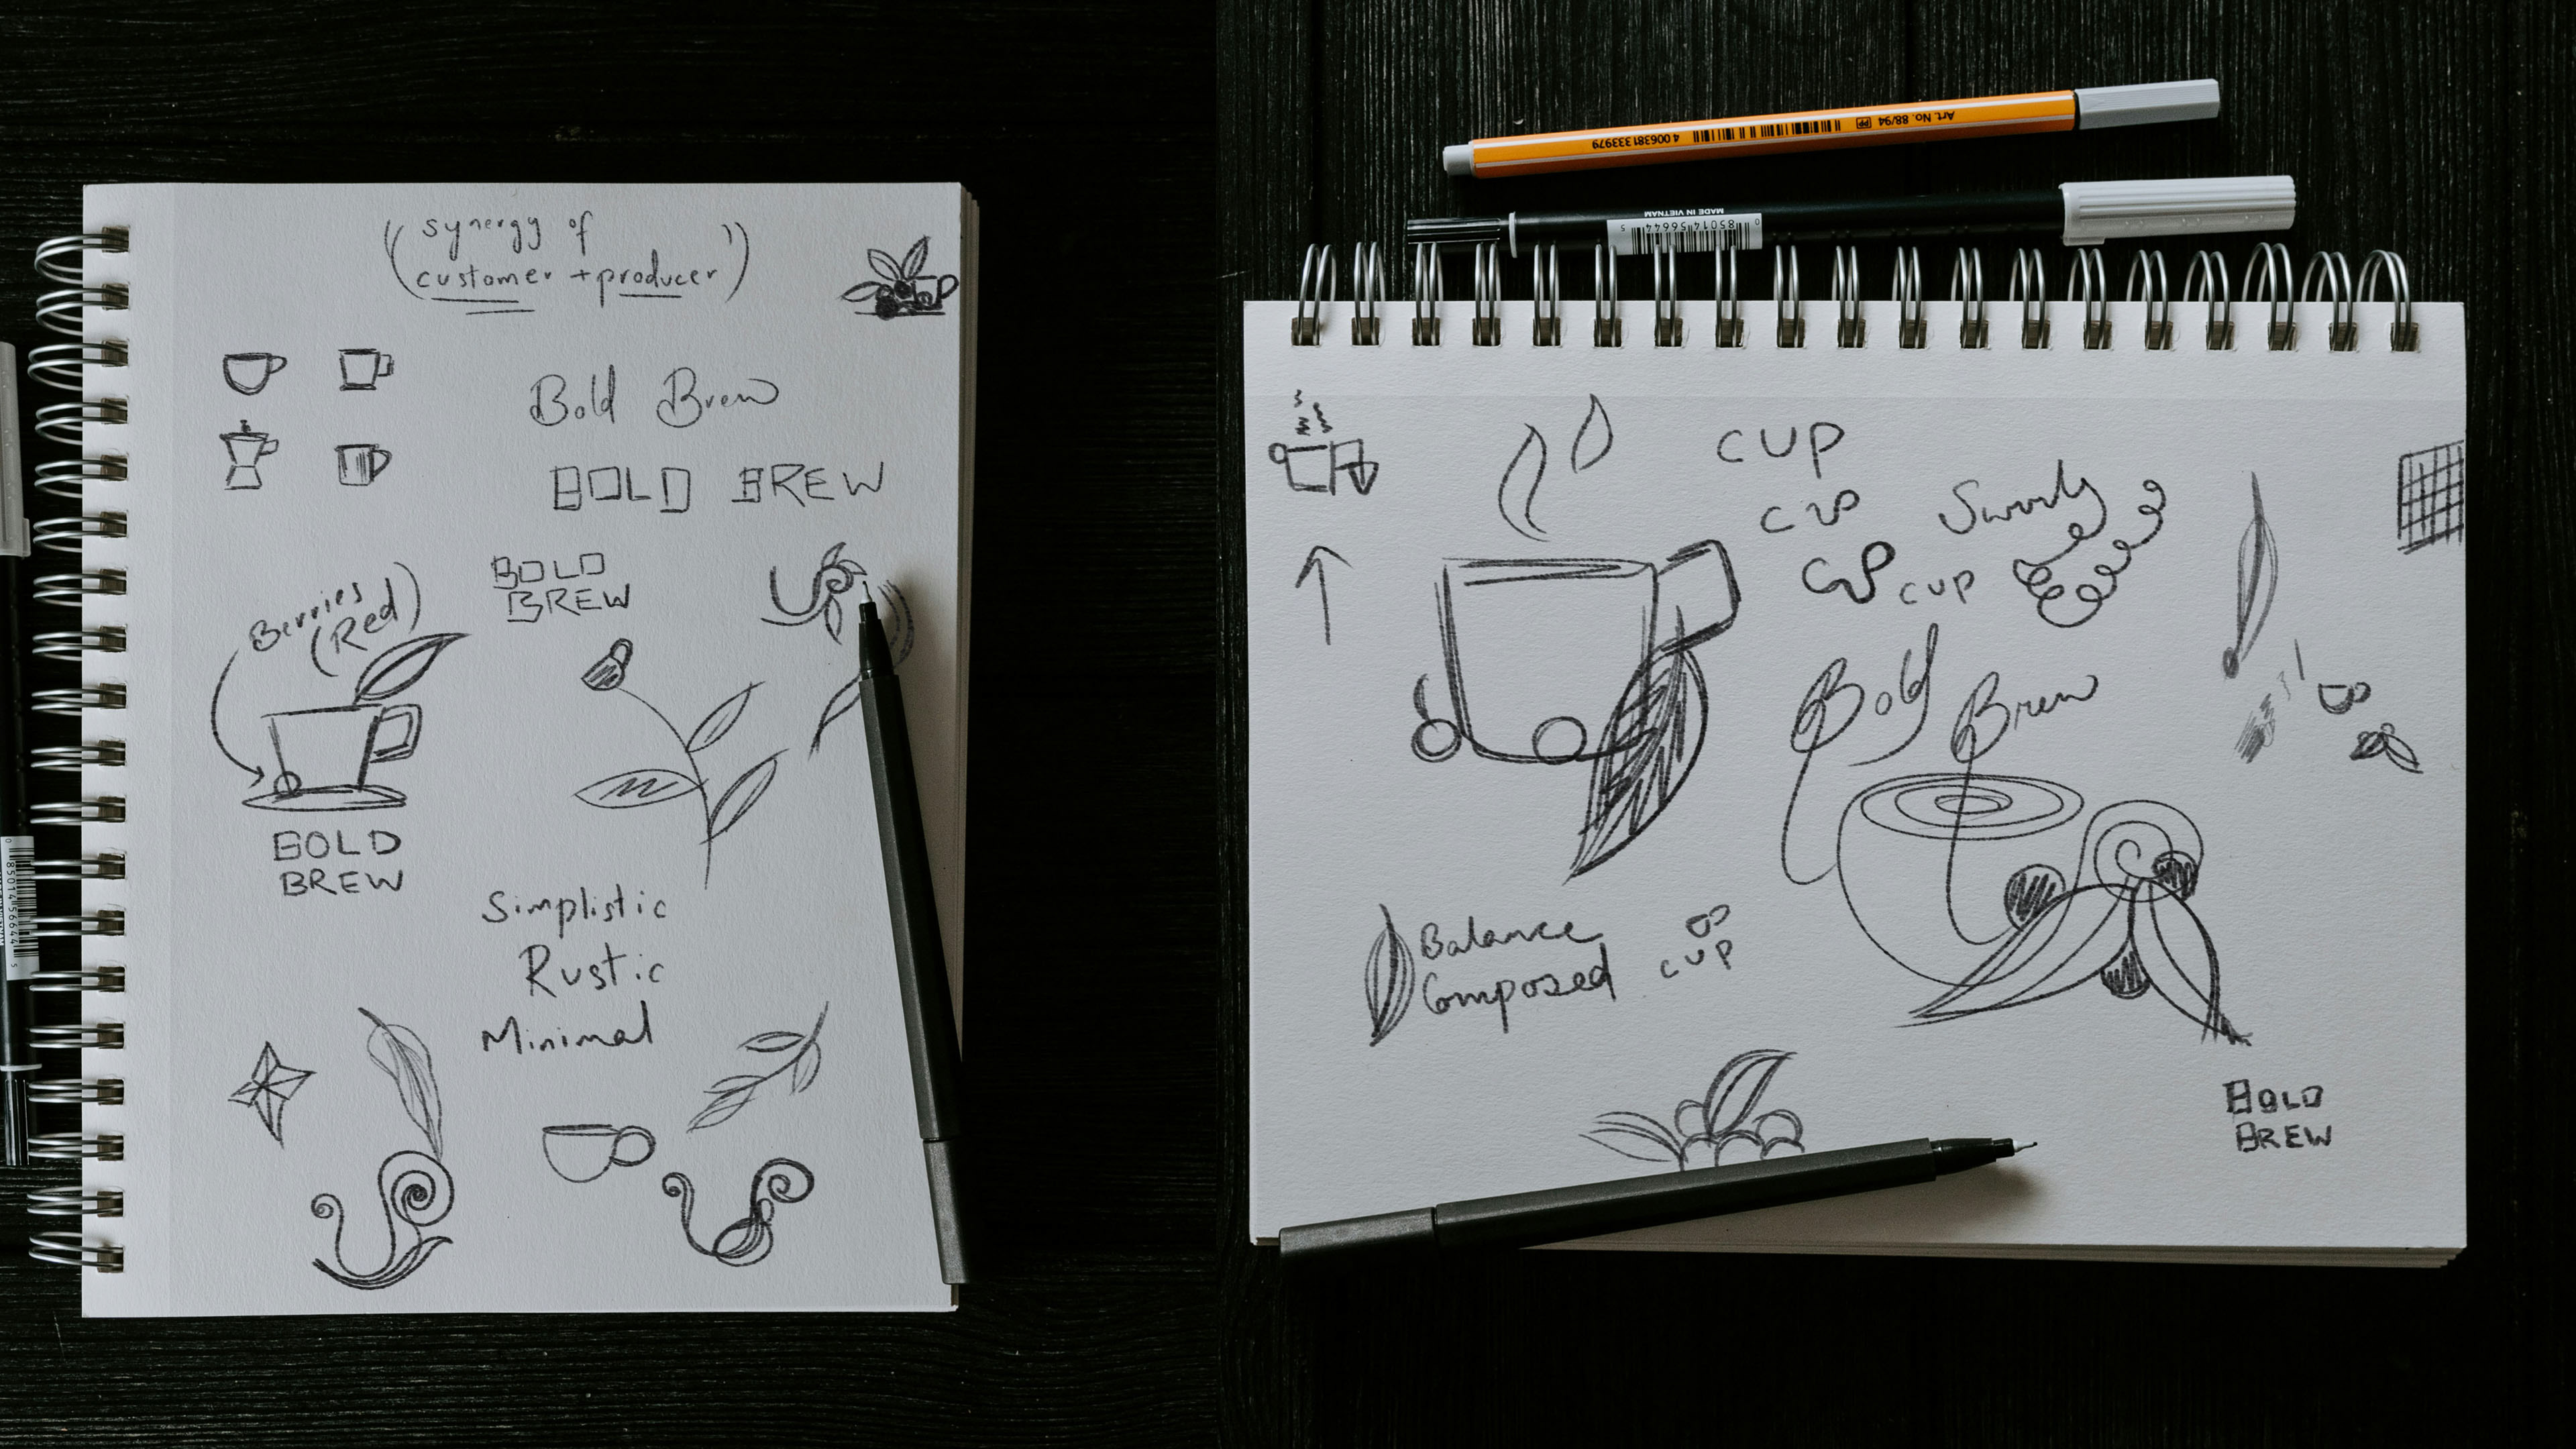 (synergy of
customer + producer)
Bold Brew
BOLD BREW
BOLD
BREW
Berries
(Red)
BOLD
BREW
Simplistic
Rustic
Minimal
0 85014 56644 5
Art. No. 88/94
4 006381 333979
MADE IN VIETNAM
0 85014 56644 5
CUP
CUP
CUP
CUP
Bold Brew
Balance
Composed
CUP
BOLD
BREW